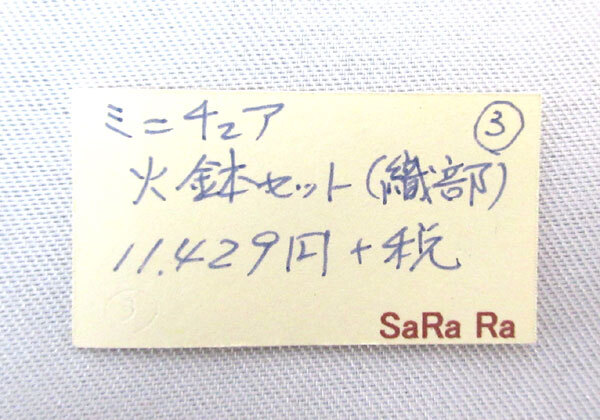 ミニチュア
③
火鉢セット(織部)
11.429円+税
③
SaRa Ra